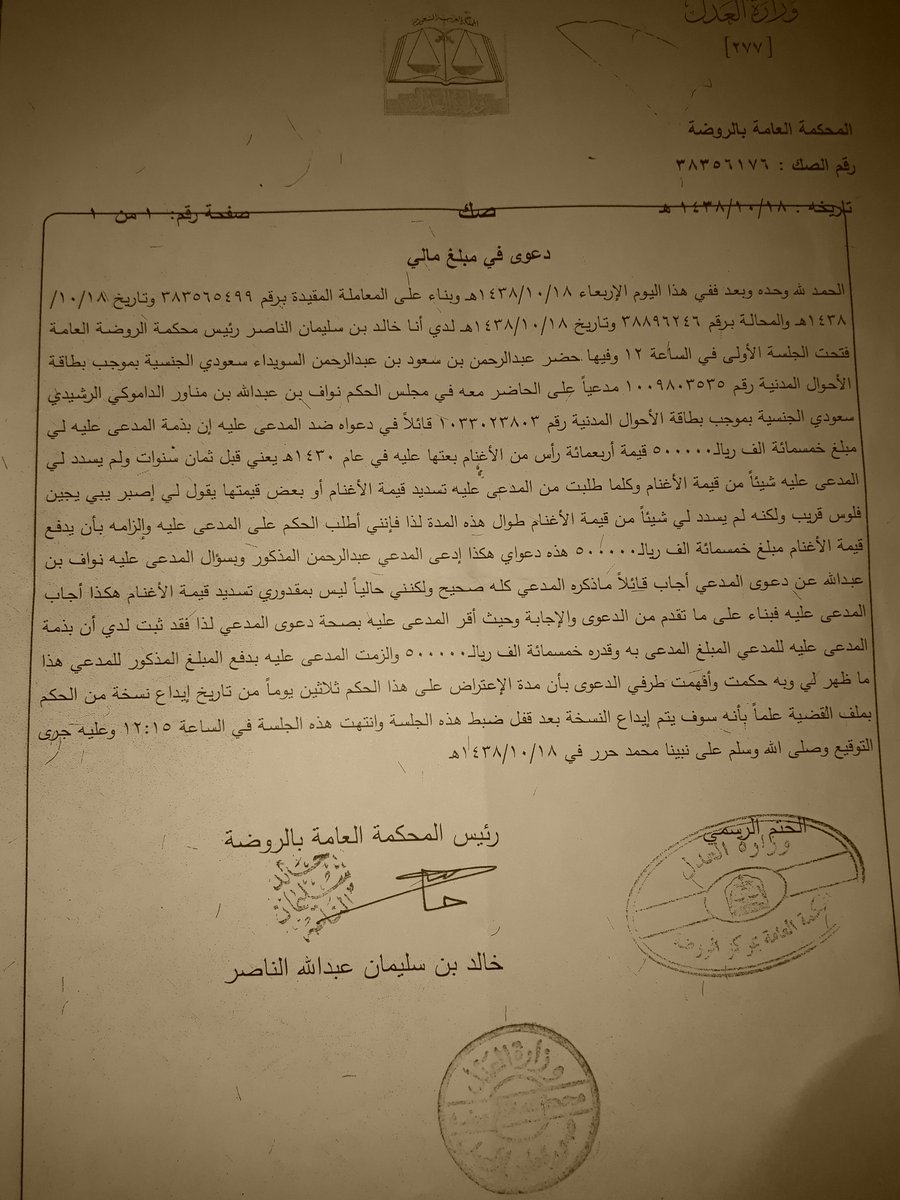 وزارة العدل
[٢٧٧]
المملكة العربية السعودية
وزارة العدل
المحكمة العامة بالروضة
رقم الصك : ٣٨٣٥٦١٧٦
تاريخه : ١٤٣٨/١٠/١٨ هـ
صك
صفحة رقم: ١ من ١
دعوى في مبلغ مالي
الحمد لله وحده وبعد ففي هذا اليوم الإربعاء ١٤٣٨/١٠/١٨هـ وبناء على المعاملة المقيدة برقم ٣٨٣٥٦٥٤٩٩ وتاريخ ١٠/١٨/
١٤٣٨هـ والمحالة برقم ٣٨٨٩٦٢٤٦ وتاريخ ١٤٣٨/١٠/١٨هـ لدي أنا خالد بن سليمان الناصر رئيس محكمة الروضة العامة
فتحت الجلسة الأولى في الساعة ١٢ وفيها حضر عبدالرحمن بن سعود بن عبدالرحمن السويداء سعودي الجنسية بموجب بطاقة
الأحوال المدنية رقم ١٠٠٩٨٠٣٥٣٥ مدعياً على الحاضر معه في مجلس الحكم نواف بن عبدالله بن مناور الداموكي الرشيدي
سعودي الجنسية بموجب بطاقة الأحوال المدنية رقم ١٠٣٣٠٢٣٨٠٣ قائلاً في دعواه ضد المدعى عليه إن بذمة المدعى عليه لي
مبلغ خمسمائة الف ريالـ٥٠٠٠٠٠ قيمة أربعمائة رأس من الأغنام بعتها عليه في عام ١٤٣٠هـ يعني قبل ثمان سنوات ولم يسدد لي
المدعى عليه شيئاً من قيمة الأغنام وكلما طلبت من المدعى عليه تسديد قيمة الأغنام أو بعض قيمتها يقول لي إصبر يبي يجين
فلوس قريب ولكنه لم يسدد لي شيئاً من قيمة الأغنام طوال هذه المدة لذا فإنني أطلب الحكم على المدعى عليه وإلزامه بأن يدفع
قيمة الأغنام مبلغ خمسمائة الف ريالـ٥٠٠٠٠٠ هذه دعواي هكذا إدعى المدعي عبدالرحمن المذكور وبسؤال المدعى عليه نواف بن
عبدالله عن دعوى المدعي أجاب قائلاً ماذكره المدعي كله صحيح ولكنني حالياً ليس بمقدوري تسديد قيمة الأغنام هكذا أجاب
المدعى عليه فبناء على ما تقدم من الدعوى والإجابة وحيث أقر المدعى عليه بصحة دعوى المدعي لذا فقد ثبت لدي أن بذمة
المدعى عليه للمدعي المبلغ المدعى به وقدره خمسمائة الف ريالـ٥٠٠٠٠٠ والزمت المدعى عليه بدفع المبلغ المذكور للمدعي هذا
ما ظهر لي وبه حكمت وأفهمت طرفي الدعوى بأن مدة الإعتراض على هذا الحكم ثلاثين يوماً من تاريخ إيداع نسخة من الحكم
بملف القضية علماً بأنه سوف يتم إيداع النسخة بعد قفل ضبط هذه الجلسة وانتهت هذه الجلسة في الساعة ١٢:١٥ وعليه جرى
التوقيع وصلى الله وسلم على نبينا محمد حرر في ١٤٣٨/١٠/١٨هـ
الختم الرسمي
رئيس المحكمة العامة بالروضة
وزارة العدل
المحكمة العامة بمركز الروضة
خالد سليمان الناصر
خالد بن سليمان عبدالله الناصر
وزارة العدل